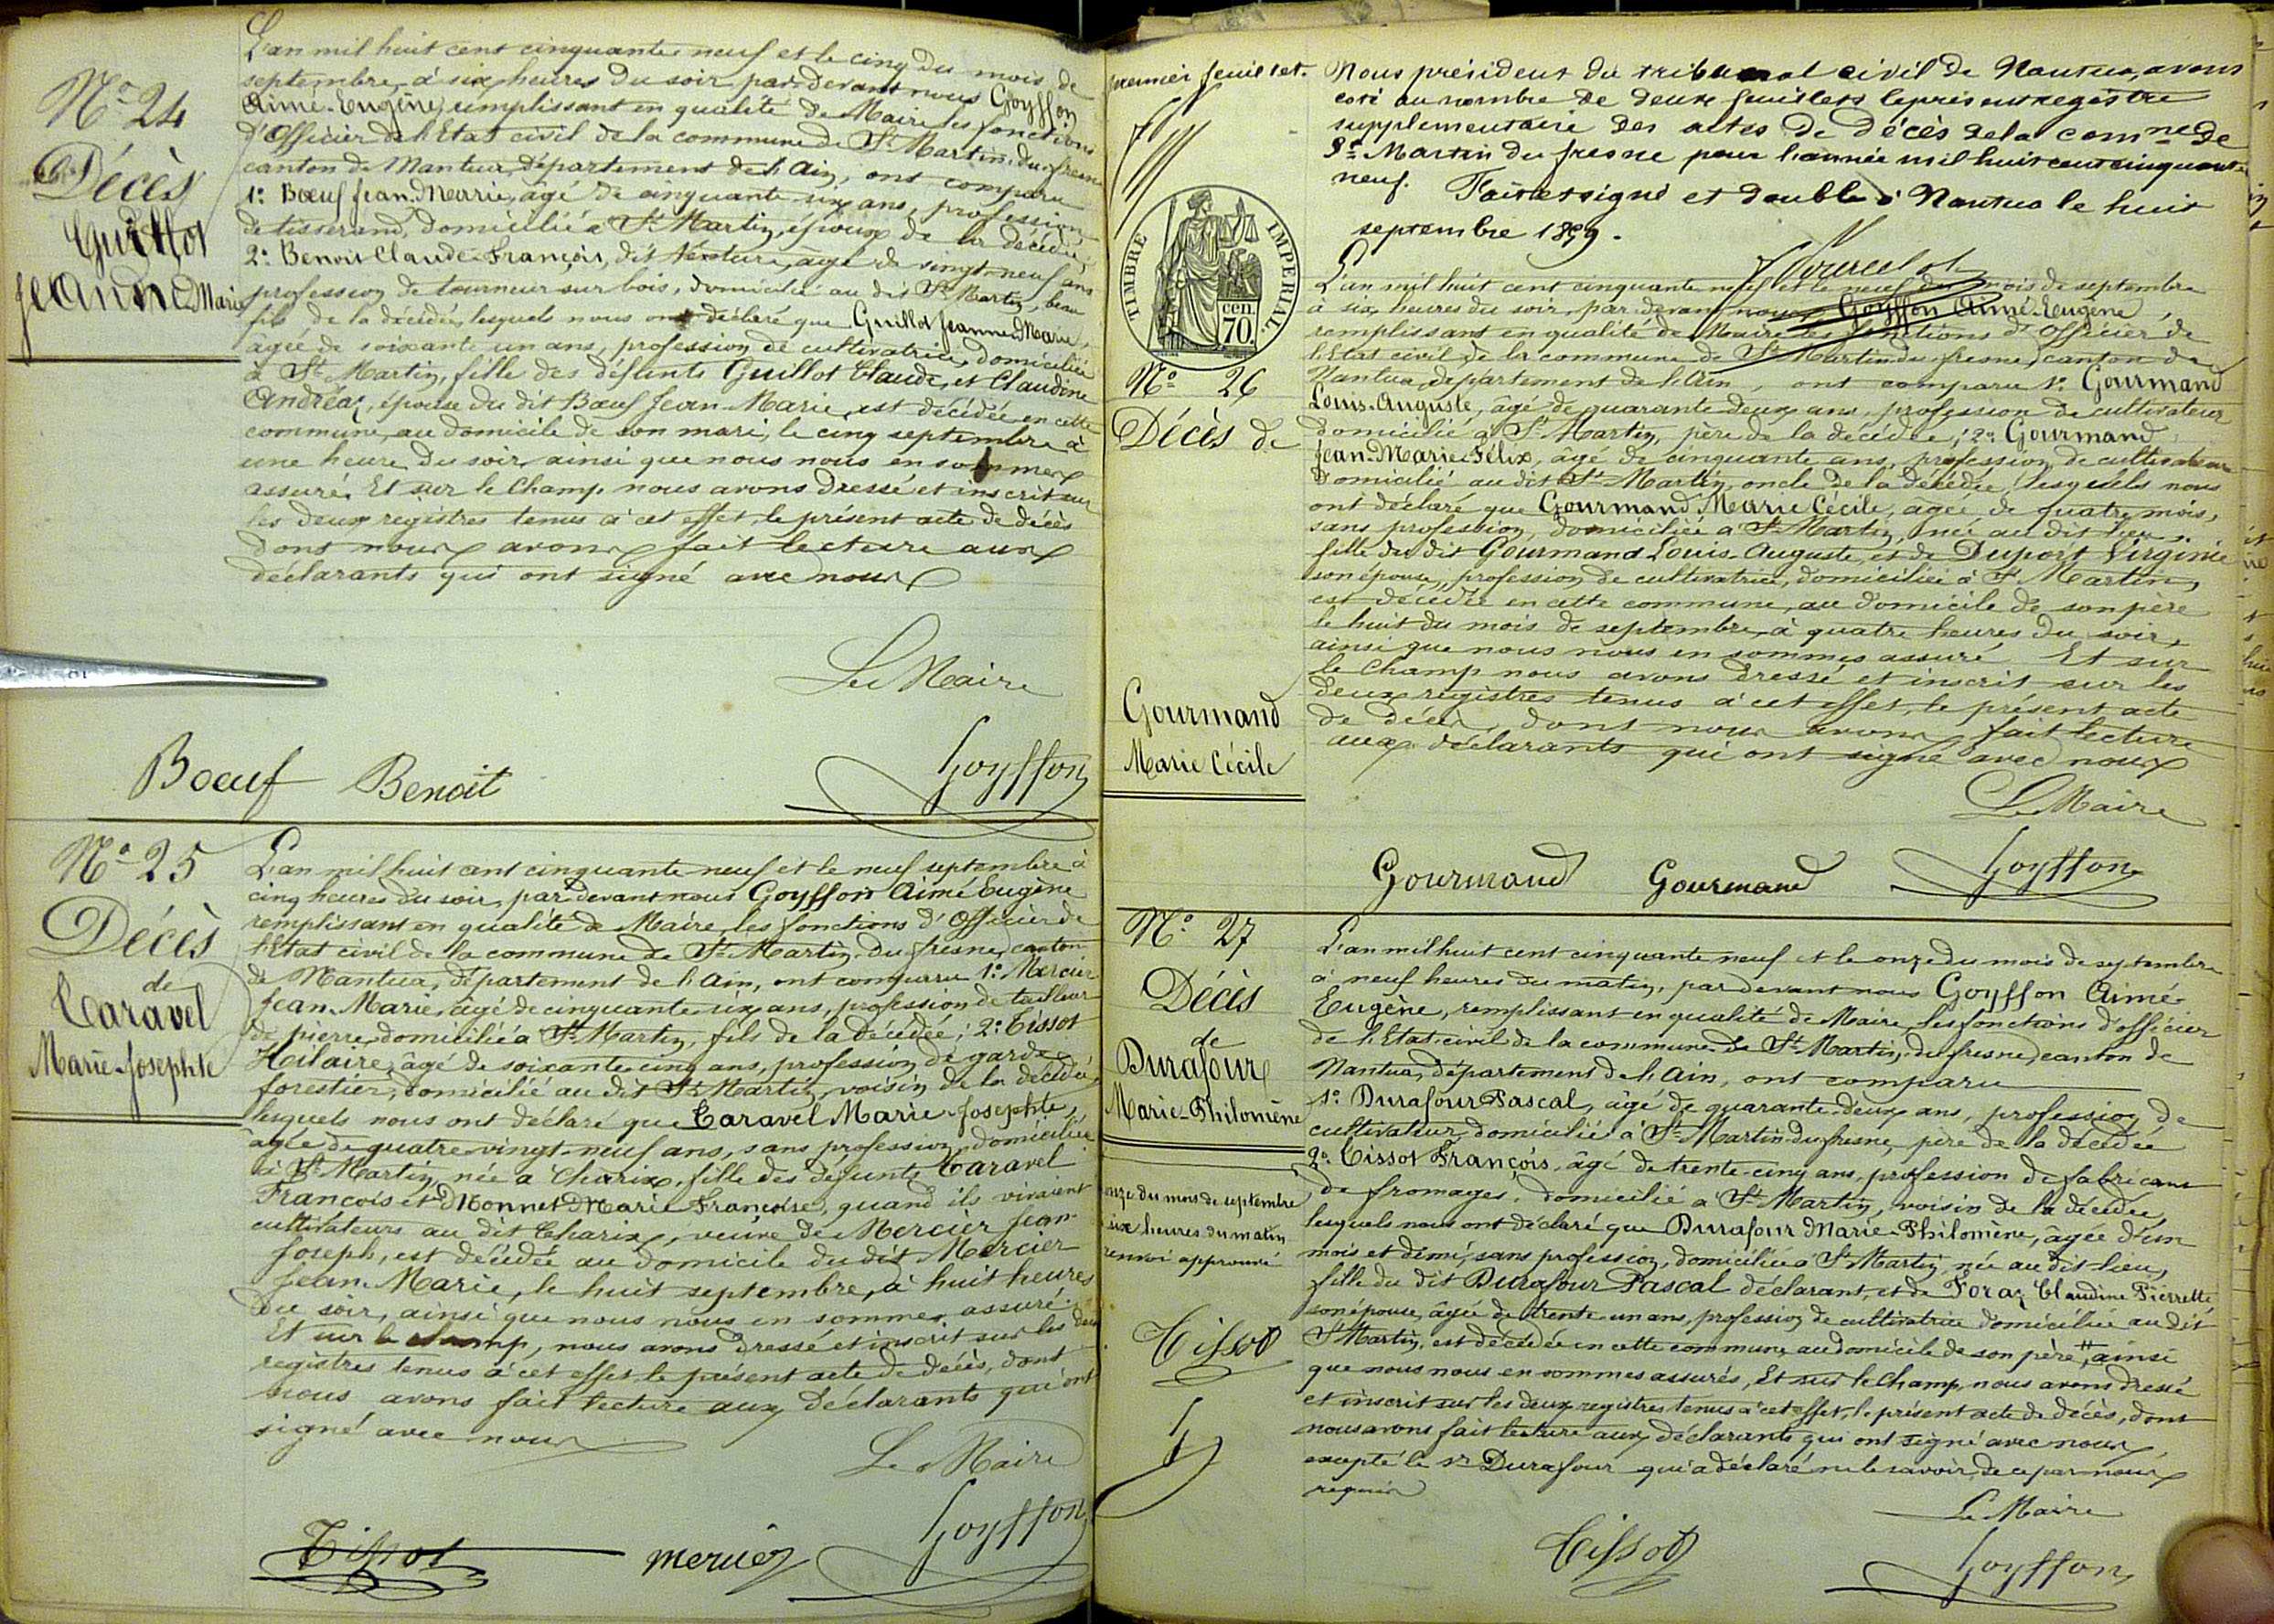 Nº 24
Décès
Guillot
Jeanne Marie
L'an mil huit cent cinquante neuf et le cinq du mois de
septembre, à six heures du soir, par devant nous Goyffon
Aimé-Eugène, remplissant en qualité de Maire les fonctions
d'Officier de l'Etat civil de la commune de St Martin du fresne
canton de Nantua, département de l'Ain, ont comparu
1º Bœuf Jean-Marie, âgé de cinquante six ans, profession
de tisserand, domicilié à St Martin, époux de la décédée,
2º Benoit Claude-François, dit âgé de vingt-neuf ans
profession de tourneur sur bois, domicilié au dit St Martin, beau
fils de la décédée, lesquels nous ont déclaré que Guillot Jeanne Marie,
âgée de soixante un ans, profession de cultivatrice, domiciliée
à St Martin, fille des défunts Guillot Claude, et Claudine
Andréaz, épouse du dit Bœuf Jean-Marie, est décédée en cette
commune, au domicile de son mari, le cinq septembre à
une heure du soir, ainsi que nous nous en sommes
assuré. Et sur le champ, nous avons dressé et inscrit sur
les deux registres tenus à cet effet, le présent acte de décès
dont nous avons fait lecture aux
déclarants qui ont signé avec nous
Le Maire
Boeuf Benoit Goyffon
Nº 25
Décès
de
Caravel
Marie-Josephte
L'an mil huit cent cinquante neuf et le neuf septembre à
cinq heures du soir, par devant nous Goyffon Aimé Eugène
remplissant en qualité de Maire, les fonctions d'Officier de
l'Etat civil de la commune de St Martin du fresne, canton
de Nantua, département de l'Ain, ont comparu 1º Mercier
Jean-Marie, âgé de cinquante six ans, profession de tailleur
de pierre, domicilié à St Martin, fils de la décédée; 2º Tissot
Hilaire, âgé de soixante cinq ans, profession de garde
forestier, domicilié au dit St Martin, voisin de la décédée,
lesquels nous ont déclaré que Caravel Marie-Josephte,
âgée de quatre-vingt-neuf ans, sans profession, domiciliée
à St Martin, née à Charix, fille des défunts Caravel
François et Monnet Marie Françoise, quand ils vivaient
cultivateurs au dit Charix, veuve de Mercier Jean
Joseph, est décédée au domicile du dit Mercier
Jean-Marie, le huit septembre, à huit heures
du soir, ainsi que nous nous en sommes assuré.
Et sur le champ, nous avons dressé et inscrit sur les deux
registres tenus à cet effet le présent acte de décès, dont
nous avons fait lecture aux déclarants qui ont
signé avec nous
Le Maire
Tissot mercier Goyffon
premier feuillet.
Nous président du tribunal civil de Nantua, avons
coté au nombre de deux feuillets le présent registre
supplementaire des actes de décès de la comne de
St Martin du fresne pour l'année mil huit cent cinquante
neuf. Fait et signé et double à Nantua le huit
septembre 1859.
TIMBRE IMPERIAL.
cen.
70.
Nº 26
Décès de
Gourmand
Marie Cécile
L'an mil huit cent cinquante neuf et le neuf du mois de septembre
à six heures du soir, par devant nous Goyffon Aimé-Eugène,
remplissant en qualité de Maire les fonctions d'Officier de
l'Etat civil, de la commune de St Martin du fresne, canton de
Nantua, département de l'Ain ont comparu 1º Gourmand
Louis-Auguste, âgé de quarante deux ans, profession de cultivateur
domicilié à St Martin, père de la décédée; 2º Gourmand
Jean-Marie-Félix, âgé de cinquante ans, profession de cultivateur
domicilié au dit St Martin, oncle de la décédée, lesquels nous
ont déclaré que Gourmand Marie Cécile, âgée de quatre mois,
sans profession, domiciliée à St Martin, née au dit lieu,
fille du dit Gourmand Louis-Auguste, et de Duport Virginie
son épouse, profession de cultivatrice, domiciliée à St Martin,
est décédée en cette commune, au domicile de son père
le huit du mois de septembre, à quatre heures du soir,
ainsi que nous nous en sommes assuré. Et sur
le champ nous avons dressé et inscrit sur les
deux registres tenus à cet effet, le présent acte
de décès, dont nous avons fait lecture
aux déclarants qui ont signé avec nous
Le Maire
Gourmand Gourmand Goyffon
Nº 27
Décès
de
Durafour
Marie-Philomène
L'an mil huit cent cinquante neuf et le onze du mois de septembre
à neuf heures du matin, par devant nous Goyffon Aimé
Eugène, remplissant en qualité de Maire, les fonctions d'officier
de l'Etat-civil de la commune de St Martin, du fresne, canton de
Nantua, département de l'Ain, ont comparu
1º Durafour Pascal, âgé de quarante-deux ans, profession de
cultivateur, domicilié à St Martin-du-fresne, père de la décédée
2º Tissot François, âgé de trente-cinq ans, profession de fabricant
de fromages, domicilié à St Martin, voisin de la décédée,
lesquels nous ont déclaré que Durafour Marie-Philomène, âgée d'un
mois et demi, sans profession, domiciliée à St Martin, née au dit lieu,
fille du dit Durafour Pascal déclarant, et de Foraz Claudine Pierrette
son épouse, âgée de trente un ans, profession de cultivatrice domiciliée au dit
St Martin, est décédée en cette commune au domicile de son père #, ainsi
que nous nous en sommes assurés, Et sur le champ, nous avons dressé
et inscrit sur les deux registres tenus à cet effet, le présent acte de décès, dont
nous avons fait lecture aux déclarants qui ont signé avec nous,
excepté le sr Durafour qui a déclaré ne le savoir, de ce par nous
requis
onze du mois de septembre
six heures du matin
renvoi approuvé
Tissot
Le Maire
Tissot Goyffon